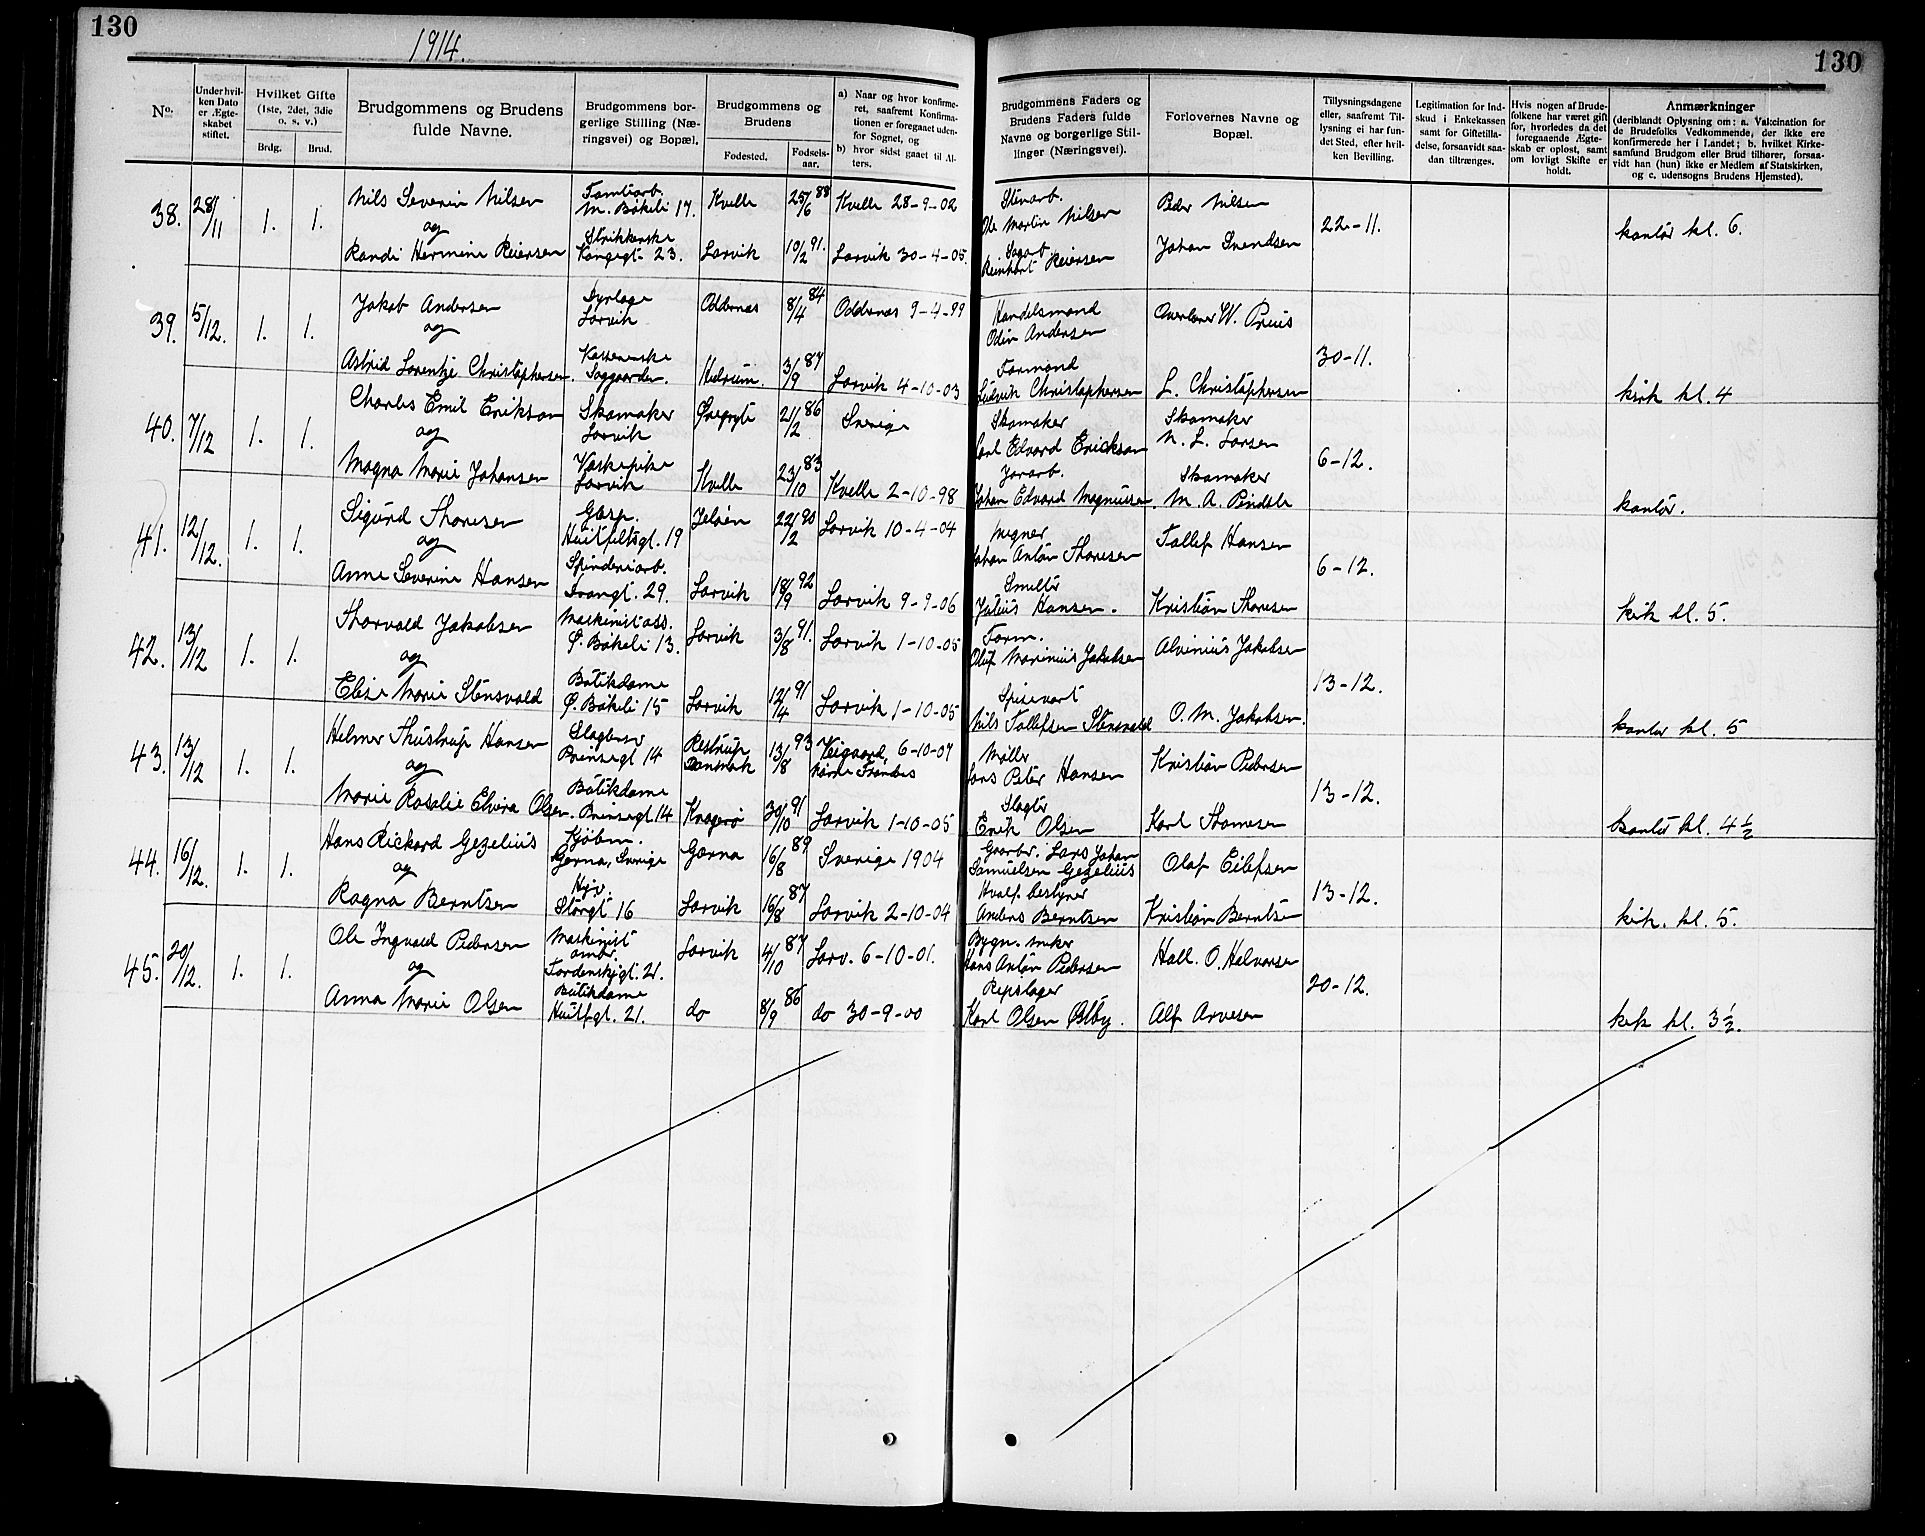 130
1914.
130
No.
Under hvil-
ken Dato
er Ægte-
skabet
stiftet.
Hvilket Gifte
(1ste, 2det, 3die
o. s. v.)
Brdg.
Brud.
Brudgommens og Brudens
fulde Navne.
Brudgommens bor-
gerlige Stilling (Næ-
ringsvei) og Bopæl.
Brudgommens og
Brudens
Fødested.
Fødsels-
aar.
a) Naar og hvor konfirme-
ret, saafremt Konfirma-
tionen er foregaaet uden-
for Sognet, og
b) hvor sidst gaaet til Al-
ters.
Brudgommens Faders og
Brudens Faders fulde
Navne og borgerlige Stil-
linger (Næringsvei).
Forlovernes Navne og
Bopæl.
Tillysningsdagene
eller, saafremt Til-
lysning ei har fun-
det Sted, efter hvil-
ken Bevilling.
Legitimation for Ind-
skud i Enkekassen
samt for Giftetilla-
delse, forsaavidt saa-
dan tiltrænges.
Hvis nogen af Brude-
folkene har været gift
før, hvorledes da det
foregaaende Ægte-
skab er opløst, samt
om lovligt Skifte er
holdt.
Anmærkninger
(deriblandt Oplysning om: a. Vakcination for
de Brudefolks Vedkommende, der ikke ere
konfirmerede her i Landet; b. hvilket Kirke-
samfund Brudgom eller Brud tilhører, forsaa-
vidt han (hun) ikke er Medlem af Statskirken,
og c. udensogns Brudens Hjemsted).
38. 28/11 1. 1. Nils Severin Nilsen M. Bøkeli 17. Kvelle 25/6 88 Kvelle 28-9-02 Stenarb. Ole Martin Nilsen Peder Nilsen 22-11. kontor kl. 6.
og
Randi Hermine Reiersen Strikkerske Kongegt. 23. Larvik 10/2 91. Larvik 30-4-05. Sagarb. Reinhart Reiersen Johan Svendsen
39. 5/12. 1. 1. Jakob Andersen Dyrlæge Larvik Oddernes 8/4 84 Oddernes 9-4-99 Handelsmand Odin Andersen Overlærer W. Prüis 30-11.
og
Astrid Lorentze Christophersen. Kassererske Hedrum. 3/9 87 Larvik 4-10-03 Formand Ludvik Christophersen L. Christophersen kirk kl. 4
40. 7/12 1. 1. Charles Emil Erikson Skomaker Larvik 21/2 86 Sverige Skomaker Carl Edvard Erickson Skomaker N. L. Larsen 6-12.
og
Magna Marie Johansen Vaskepike Larvik Kvelle 23/10 83 Kvelle 2-10-98 Jarnarb. Johan Edvard Magnussen. Skomaker M. A. Pindsle kontor.
41. 12/12. 1. 1. Sigurd Thoresen Huitfeltsgt. 19 Jeløen 22/2 90 Larvik 10-4-04 Johan Anton Thoresen Tallef Hansen 6-12.
og
Anne Severine Hansen Spinderiarb. Trangt. 29. Larvik 18/9 92 Larvik 9-9-06 Smeltr Julius Hansen. Kristian Thoresen kirk kl. 5.
42. 13/12 1. 1. Thorvald Jakobsen Maskinistass. Ø. Bøkeli 13. Larvik 3/8 91. Larvik 1-10-05 Form. Oluf Marinius Jakobsen Alvinius Jakobsen 13-12.
og
Elise Marie Stensvold Butikdame Ø. Bøkeli 15 Larvik 12/4 91 Larvik 1-10-05 Spisevert Nils Tallefsen Stensvold O. M. Jakobsen. kontor kl. 5
43. 13/12 1. 1. Helmer Thustrup Hansen Prinsegt 14 Restrup Danmark 13/8 93 6-10-07 Møller Lars Peter Hansen Kristian Pedersen 13-12.
og
Marie Rosalie Elvira Olsen. Butikdame Prinsegt. 14 Kragerø 30/10 91 Larvik 1-10-05 Slagter Erik Olsen Karl Thomesen kontor kl. 4½
44. 16/12. 1. 1. Hans Rickard Gezelius Kjøbm. Garna, Sverige Garna 16/8 89 Sverige 1904 Gaarbr. Lars Johan Samuelsen Gezelius Olaf Eilefsen 13-12.
og
Ragna Berntsen Hjv. Storgt 16 Larvik 16/8 87 Larvik 2-10-04 Hvalf. bestyrer Anders Berntsen Kristian Berntsen kirk. kl. 5.
45. 20/12. 1. 1. Ole Ingvald Pedersen Maskinist Tordenskjgt. 21. Larvik 4/10 87 Larv. 6-10-01. Bygn. snker Hans Anton Pedersen Hall. O. Halvorsen 20-12.
og
Anna Marie Olsen Butikdame Huitfgt. 21. do 8/9 86 do 30-9-00 Repslager Karl Olsen Østby. Alf Arvesen kirk kl. 3½.